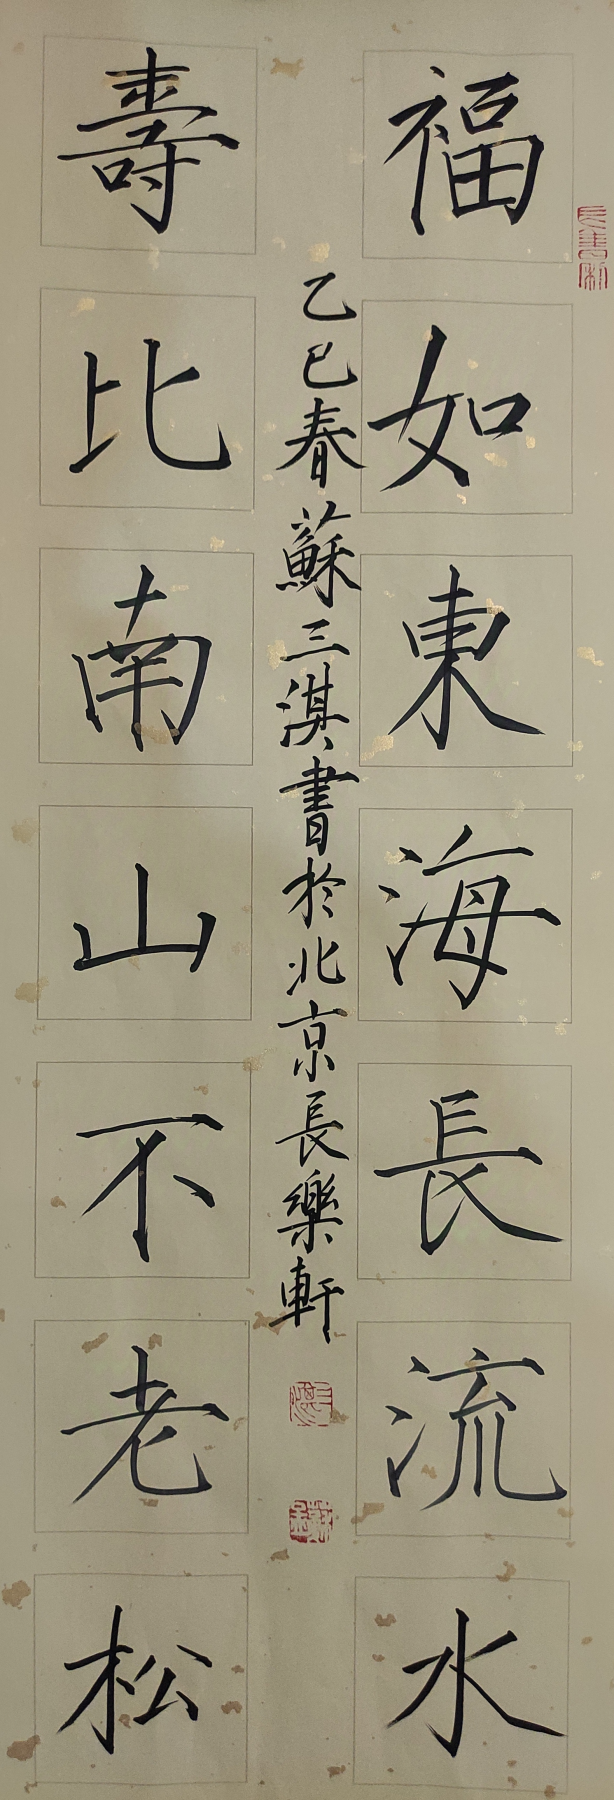 福如東海長流水
乙巳春蘇三淇書於北京長樂軒
壽比南山不老松